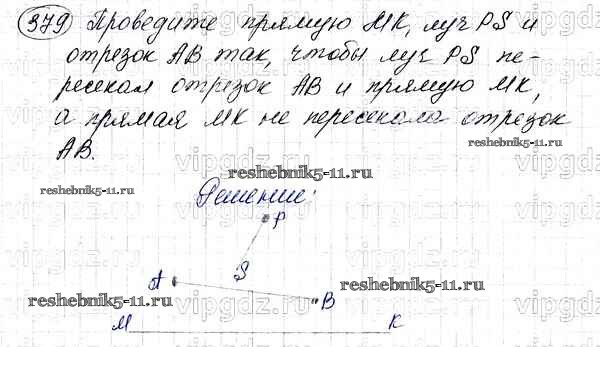 379 Проведите прямую МК, луч PS и
отрезок АВ так, чтобы луч PS пе-
ресекал отрезок АВ и прямую МК,
а прямая МК не пересекала отрезок
АВ.
reshebnik5-11.ru
reshebnik5-11.ru
reshebnik5-11.ru
Решение:
P
S
A
reshebnik5-11.ru
reshebnik5-11.ru
B
М
К